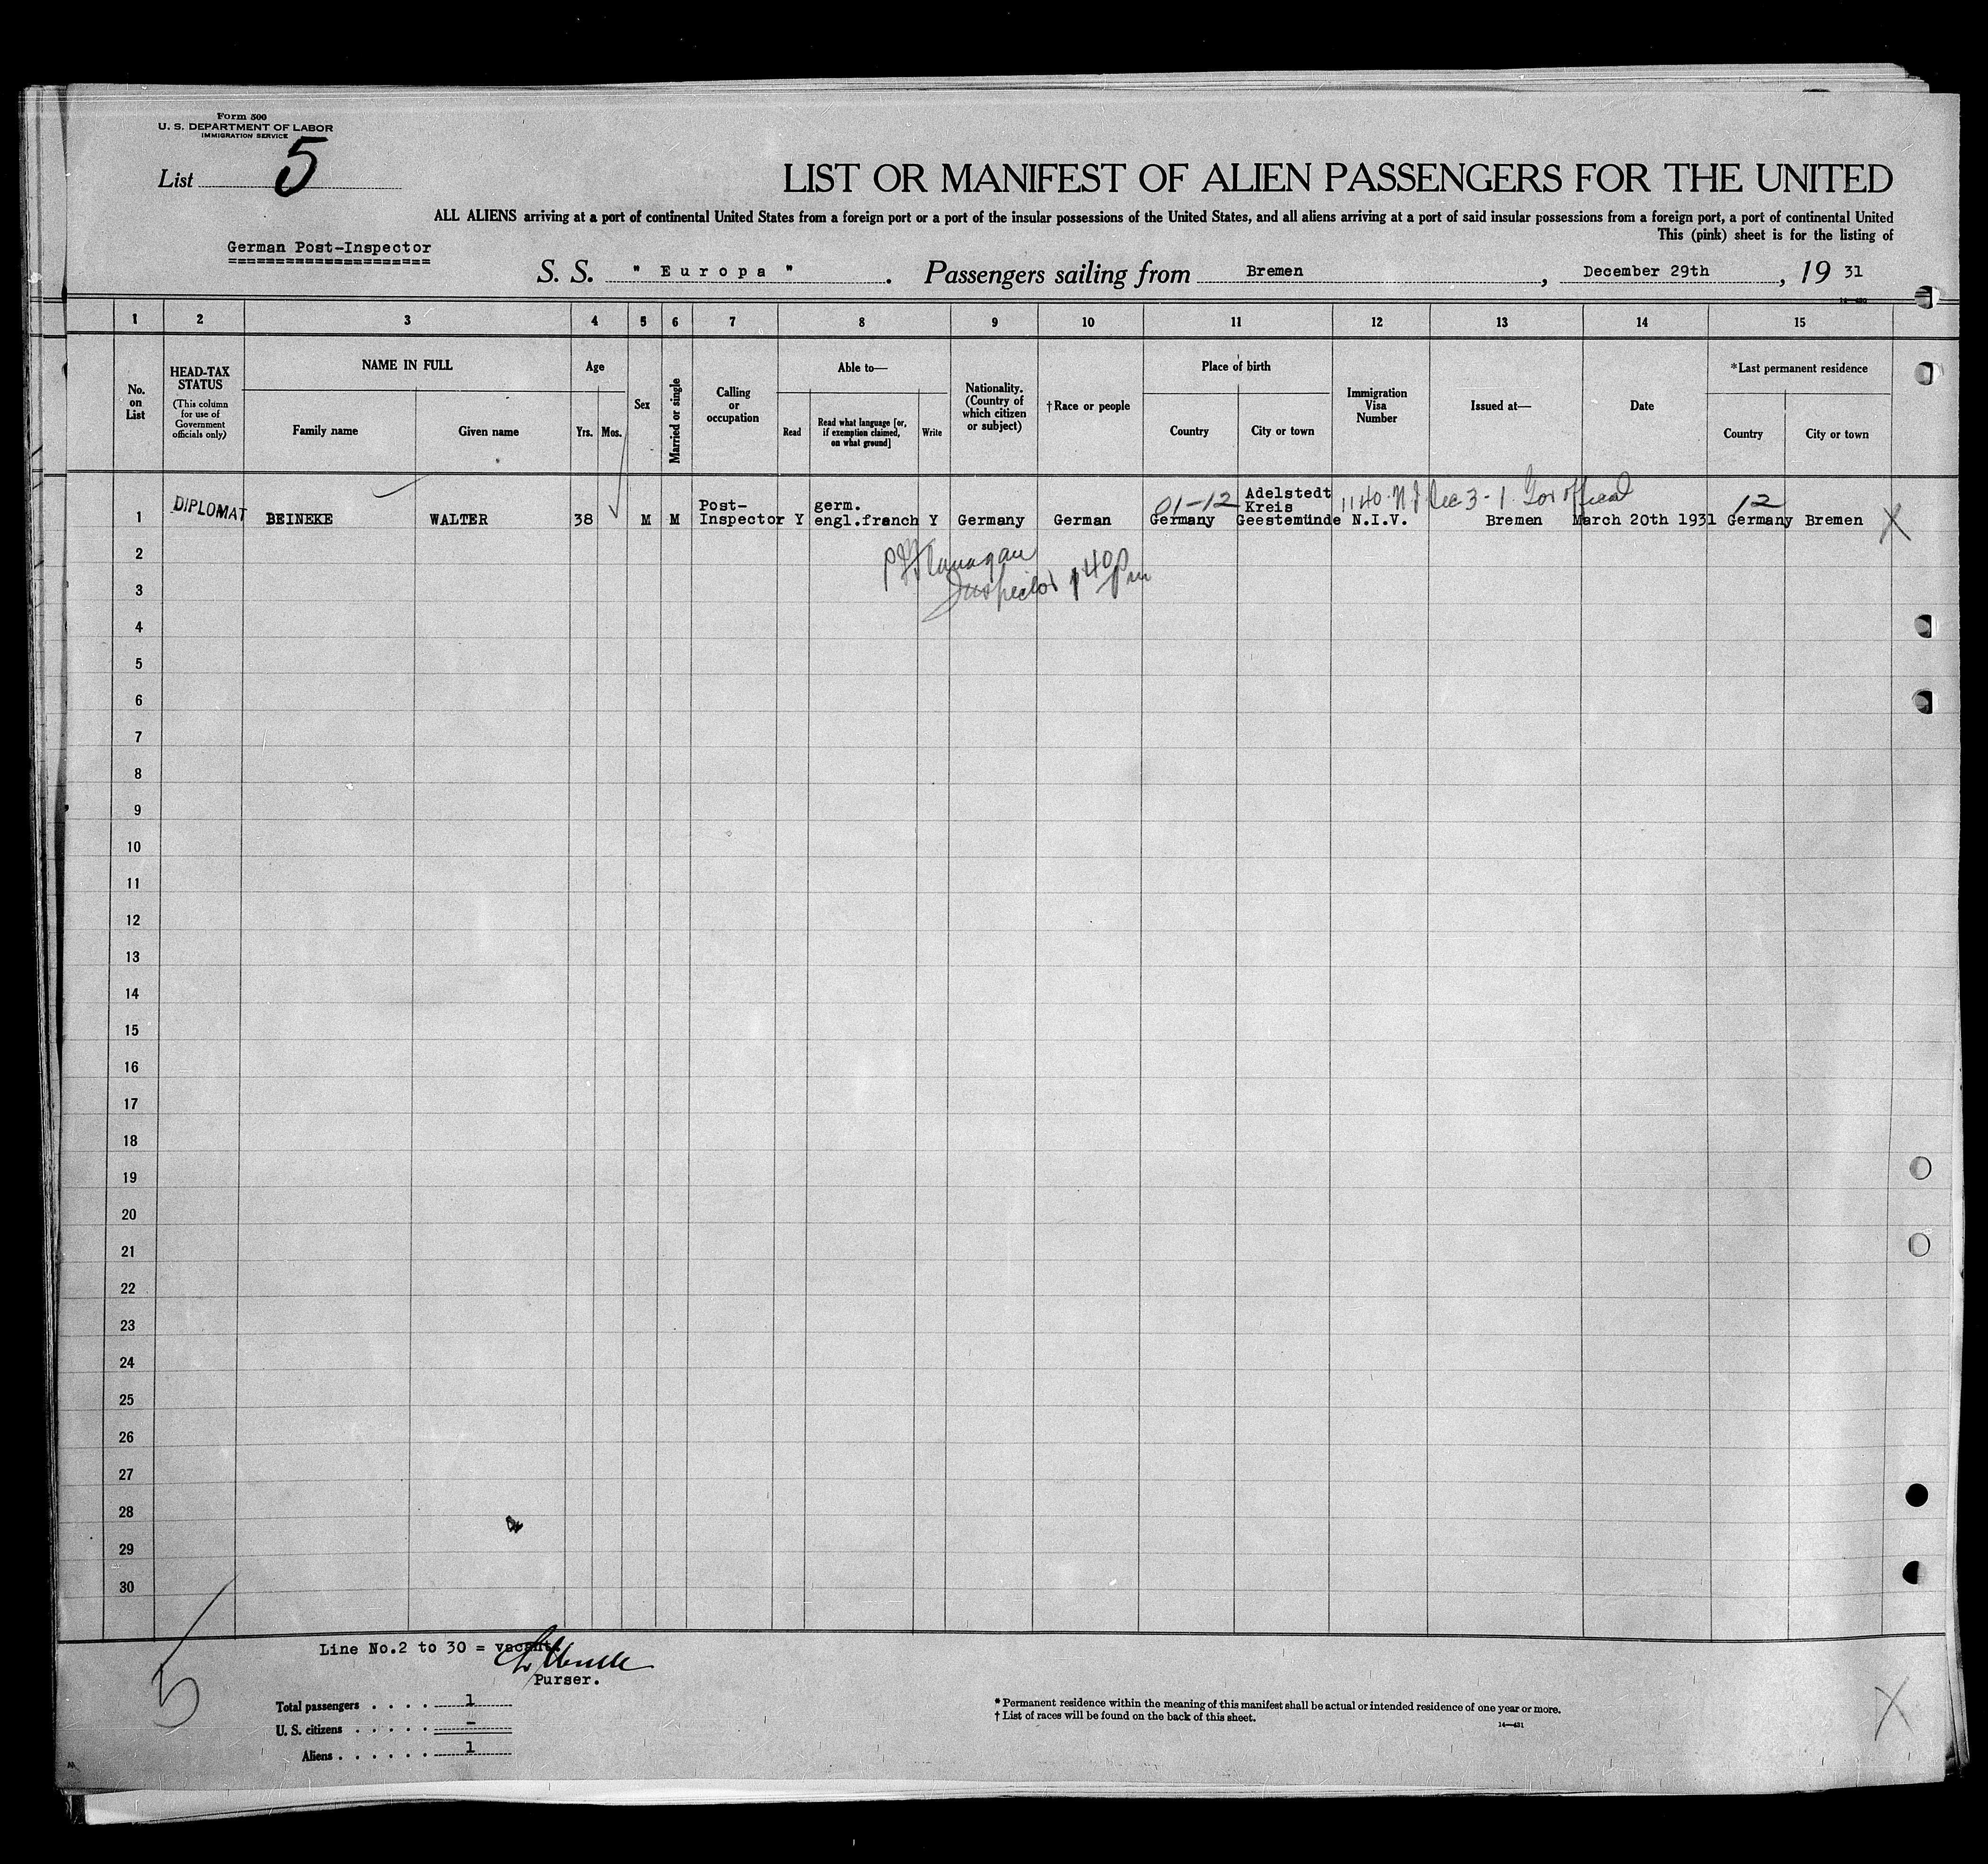 Form 500
U. S. DEPARTMENT OF LABOR
IMMIGRATION SERVICE
List 5
LIST OR MANIFEST OF ALIEN PASSENGERS FOR THE UNITED
ALL ALIENS arriving at a port of continental United States from a foreign port or a port of the insular possessions of the United States, and all aliens arriving at a port of said insular possessions from a foreign port, a port of continental United
This (pink) sheet is for the listing of
German Post-Inspector
S. S. " Europa ". Passengers sailing from Bremen, December 29th, 19 31
14—430
1 2 3 4 5 6 7 8 9 10 11 12 13 14 15
No. on List
HEAD-TAX STATUS
(This column for use of Government officials only)
NAME IN FULL
Family name Given name
Age
Yrs. Mos.
Sex
Married or single
Calling or occupation
Able to—
Read
Read what language [or, if exemption claimed, on what ground]
Write
Nationality. (Country of which citizen or subject)
†Race or people
Place of birth
Country City or town
Immigration Visa Number
Issued at—
Date
*Last permanent residence
Country City or town
1 DIPLOMAT BEINEKE WALTER 38 M M Post-Inspector Y germ. engl.french Y Germany German 01-12 Germany Adelstedt Kreis Geestemünde 1140 N.I.V. Dec 3-1 Gov official Bremen March 20th 1931 12 Germany Bremen X
2
Flanagan
3
Inspector 1 40 Pm
4
5
6
7
8
9
10
11
12
13
14
15
16
17
18
19
20
21
22
23
24
25
26
27
28
29
30
Line No.2 to 30 = vacant.
Purser.
5
Total passengers . . . . 1
U. S. citizens . . . . . –
Aliens . . . . . . 1
* Permanent residence within the meaning of this manifest shall be actual or intended residence of one year or more.
† List of races will be found on the back of this sheet.
14—431
X